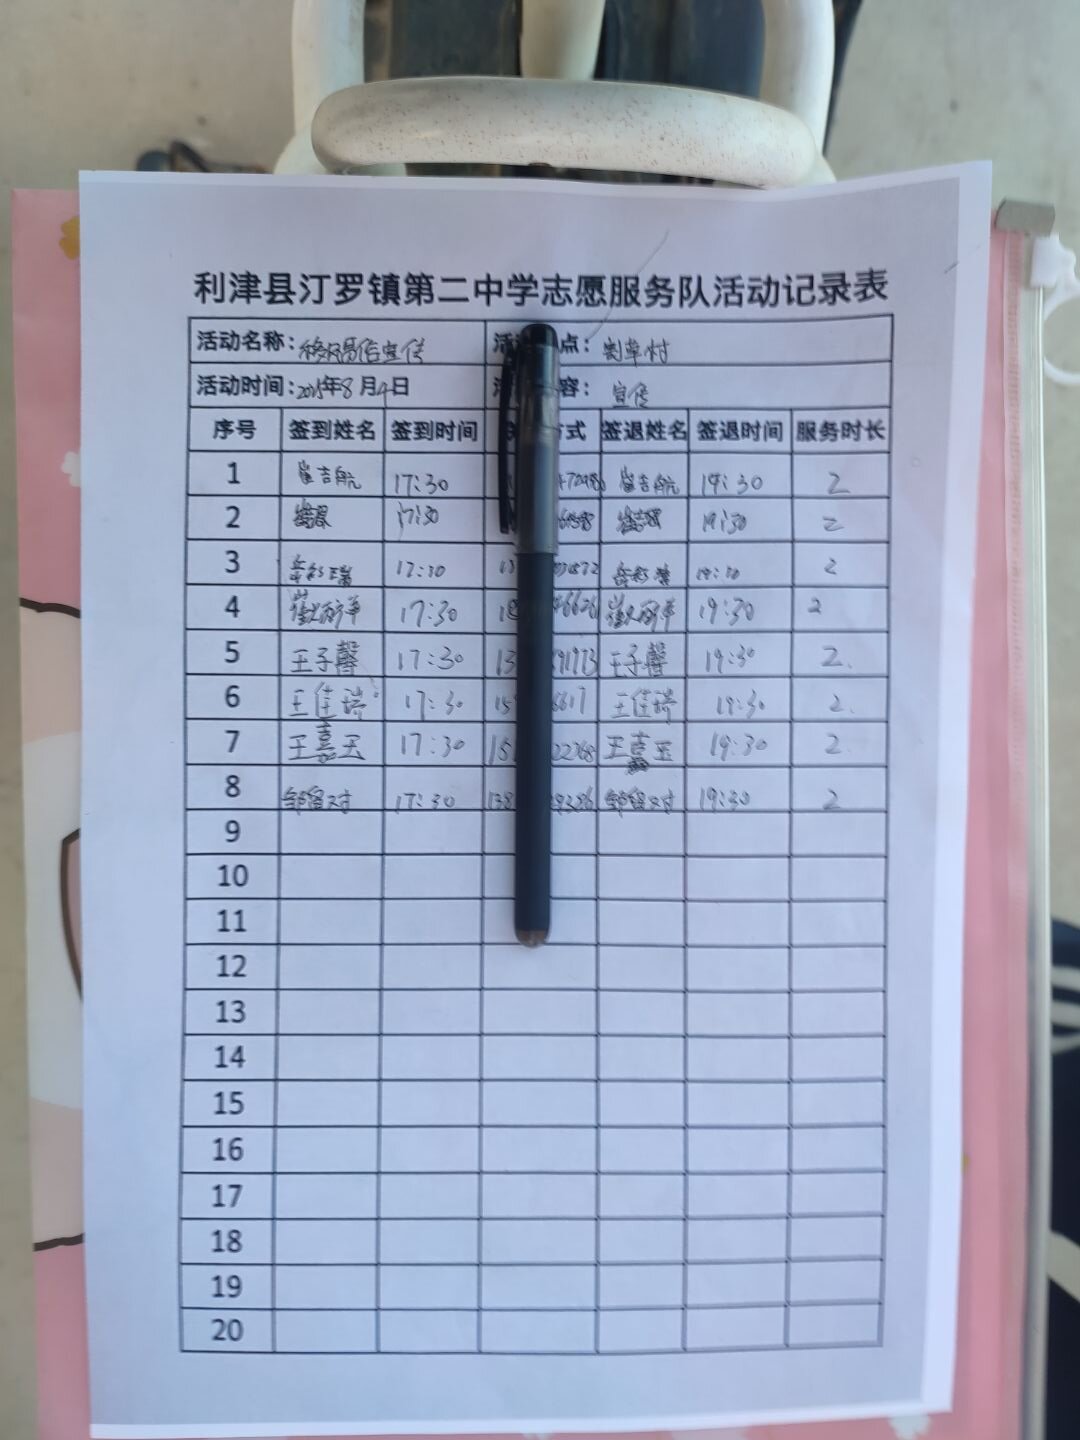 利津县汀罗镇第二中学志愿服务队活动记录表
活动名称：移风易俗宣传 活 点：割草村
活动时间：2025年8月4日 容：宣传
序号 签到姓名 签到时间 式 签退姓名 签退时间 服务时长
1 崔吉航 17:30 崔吉航 19:30 2
2 17:30 19:30 2
3 17:30 19:30 2
4 17:30 18 6626 19:30 2
5 王子馨 17:30 13 91973 王子馨 19:30 2.
6 王佳瑞 17:30 15 6617 王佳瑞 19:30 2.
7 王嘉玉 17:30 151 22368 王嘉玉 19:30 2
8 17:30 138 19:30 2
9
10
11
12
13
14
15
16
17
18
19
20